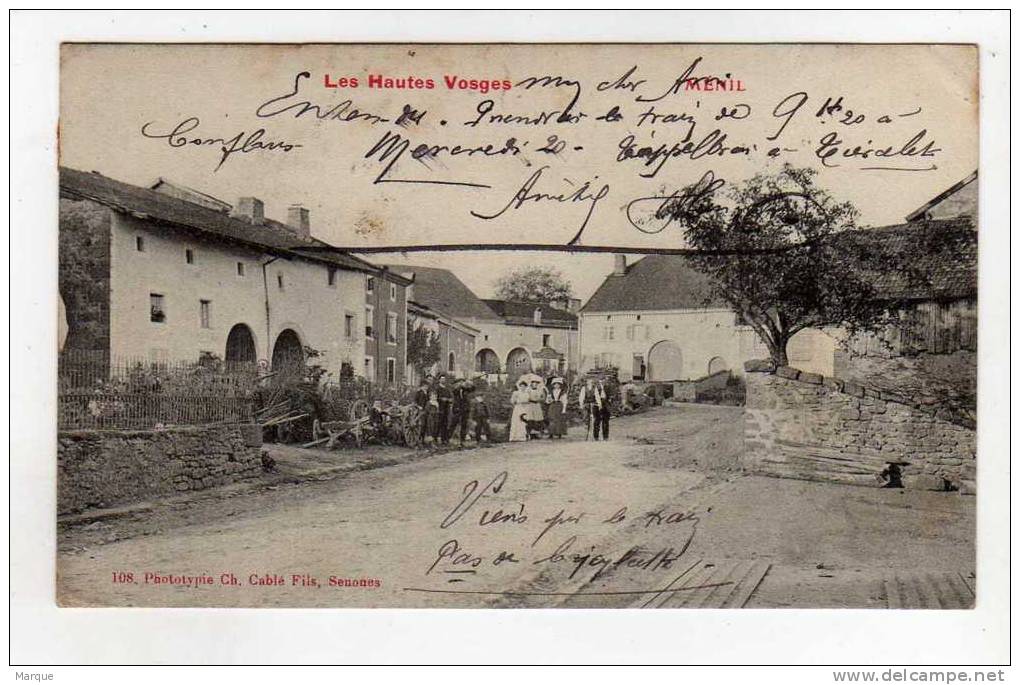 Les Hautes Vosges MÉNIL
my cher Ami
Entendu. Prendrai le train de 9h 20 à
Conflans Mercredi 20. à
Amitié
Viens par le train
Pas de bicyclette
108. Phototypie Ch. Cablé Fils, Senones
Marque
www.delcampe.net